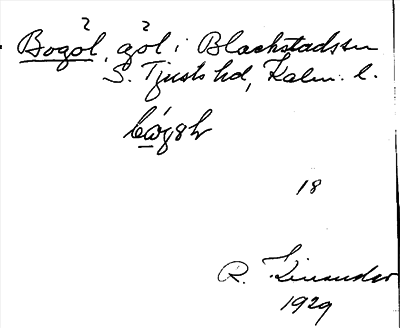 Bogöl, göl i Blackstads sn
S. Tjusts hd, Kalm. l.
18
R. Linander
1929